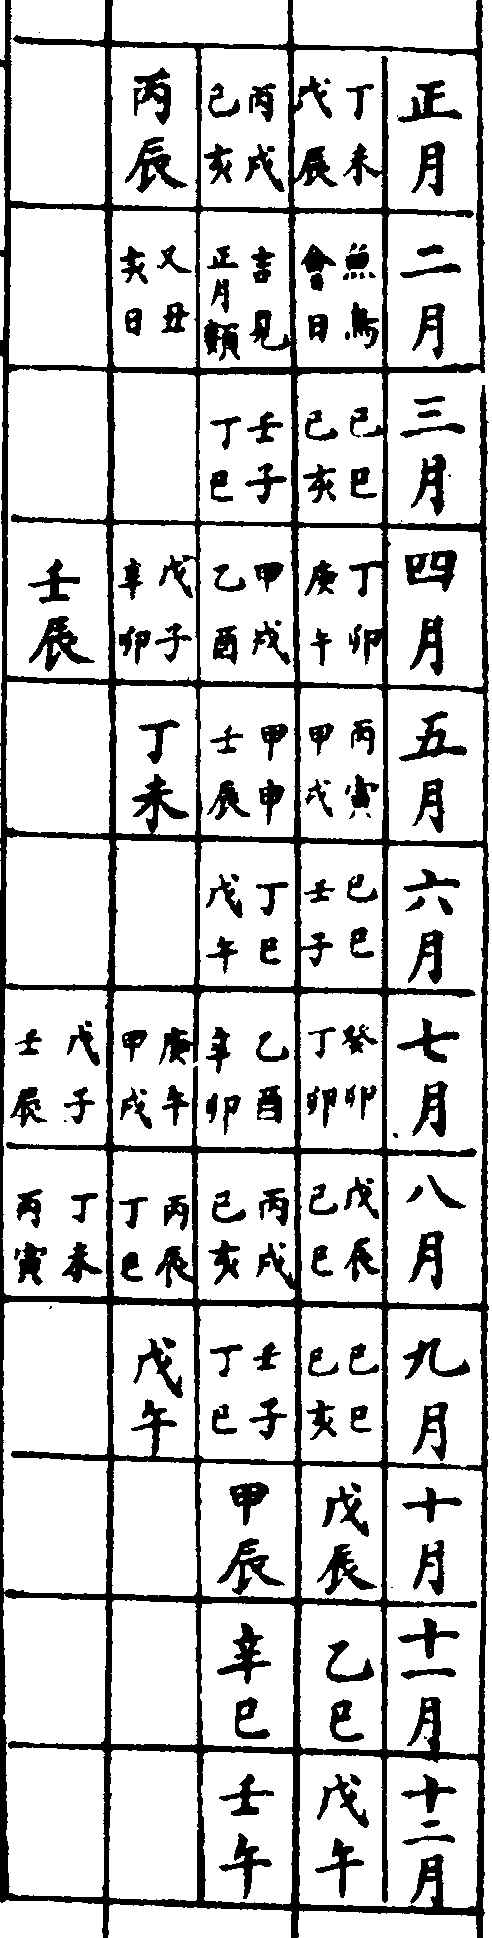 正月
丁未
戊辰
丙戌
己亥
丙辰
二月
魚鳥
會日
吉見
正月類
又丑
亥日
三月
己巳
己亥
壬子
丁巳
四月
丁卯
庚午
甲戌
乙酉
戊子
辛卯
壬辰
五月
丙寅
甲戌
甲申
壬辰
丁未
六月
己巳
壬子
丁巳
戊午
七月
癸卯
丁卯
乙酉
辛卯
庚午
甲戌
戊子
壬辰
八月
戊辰
己巳
丙戌
己亥
丙辰
丁巳
丁未
丙寅
九月
己巳
己亥
壬子
丁巳
戊午
十月
戊辰
甲辰
十一月
乙巳
辛巳
十二月
戊午
壬午